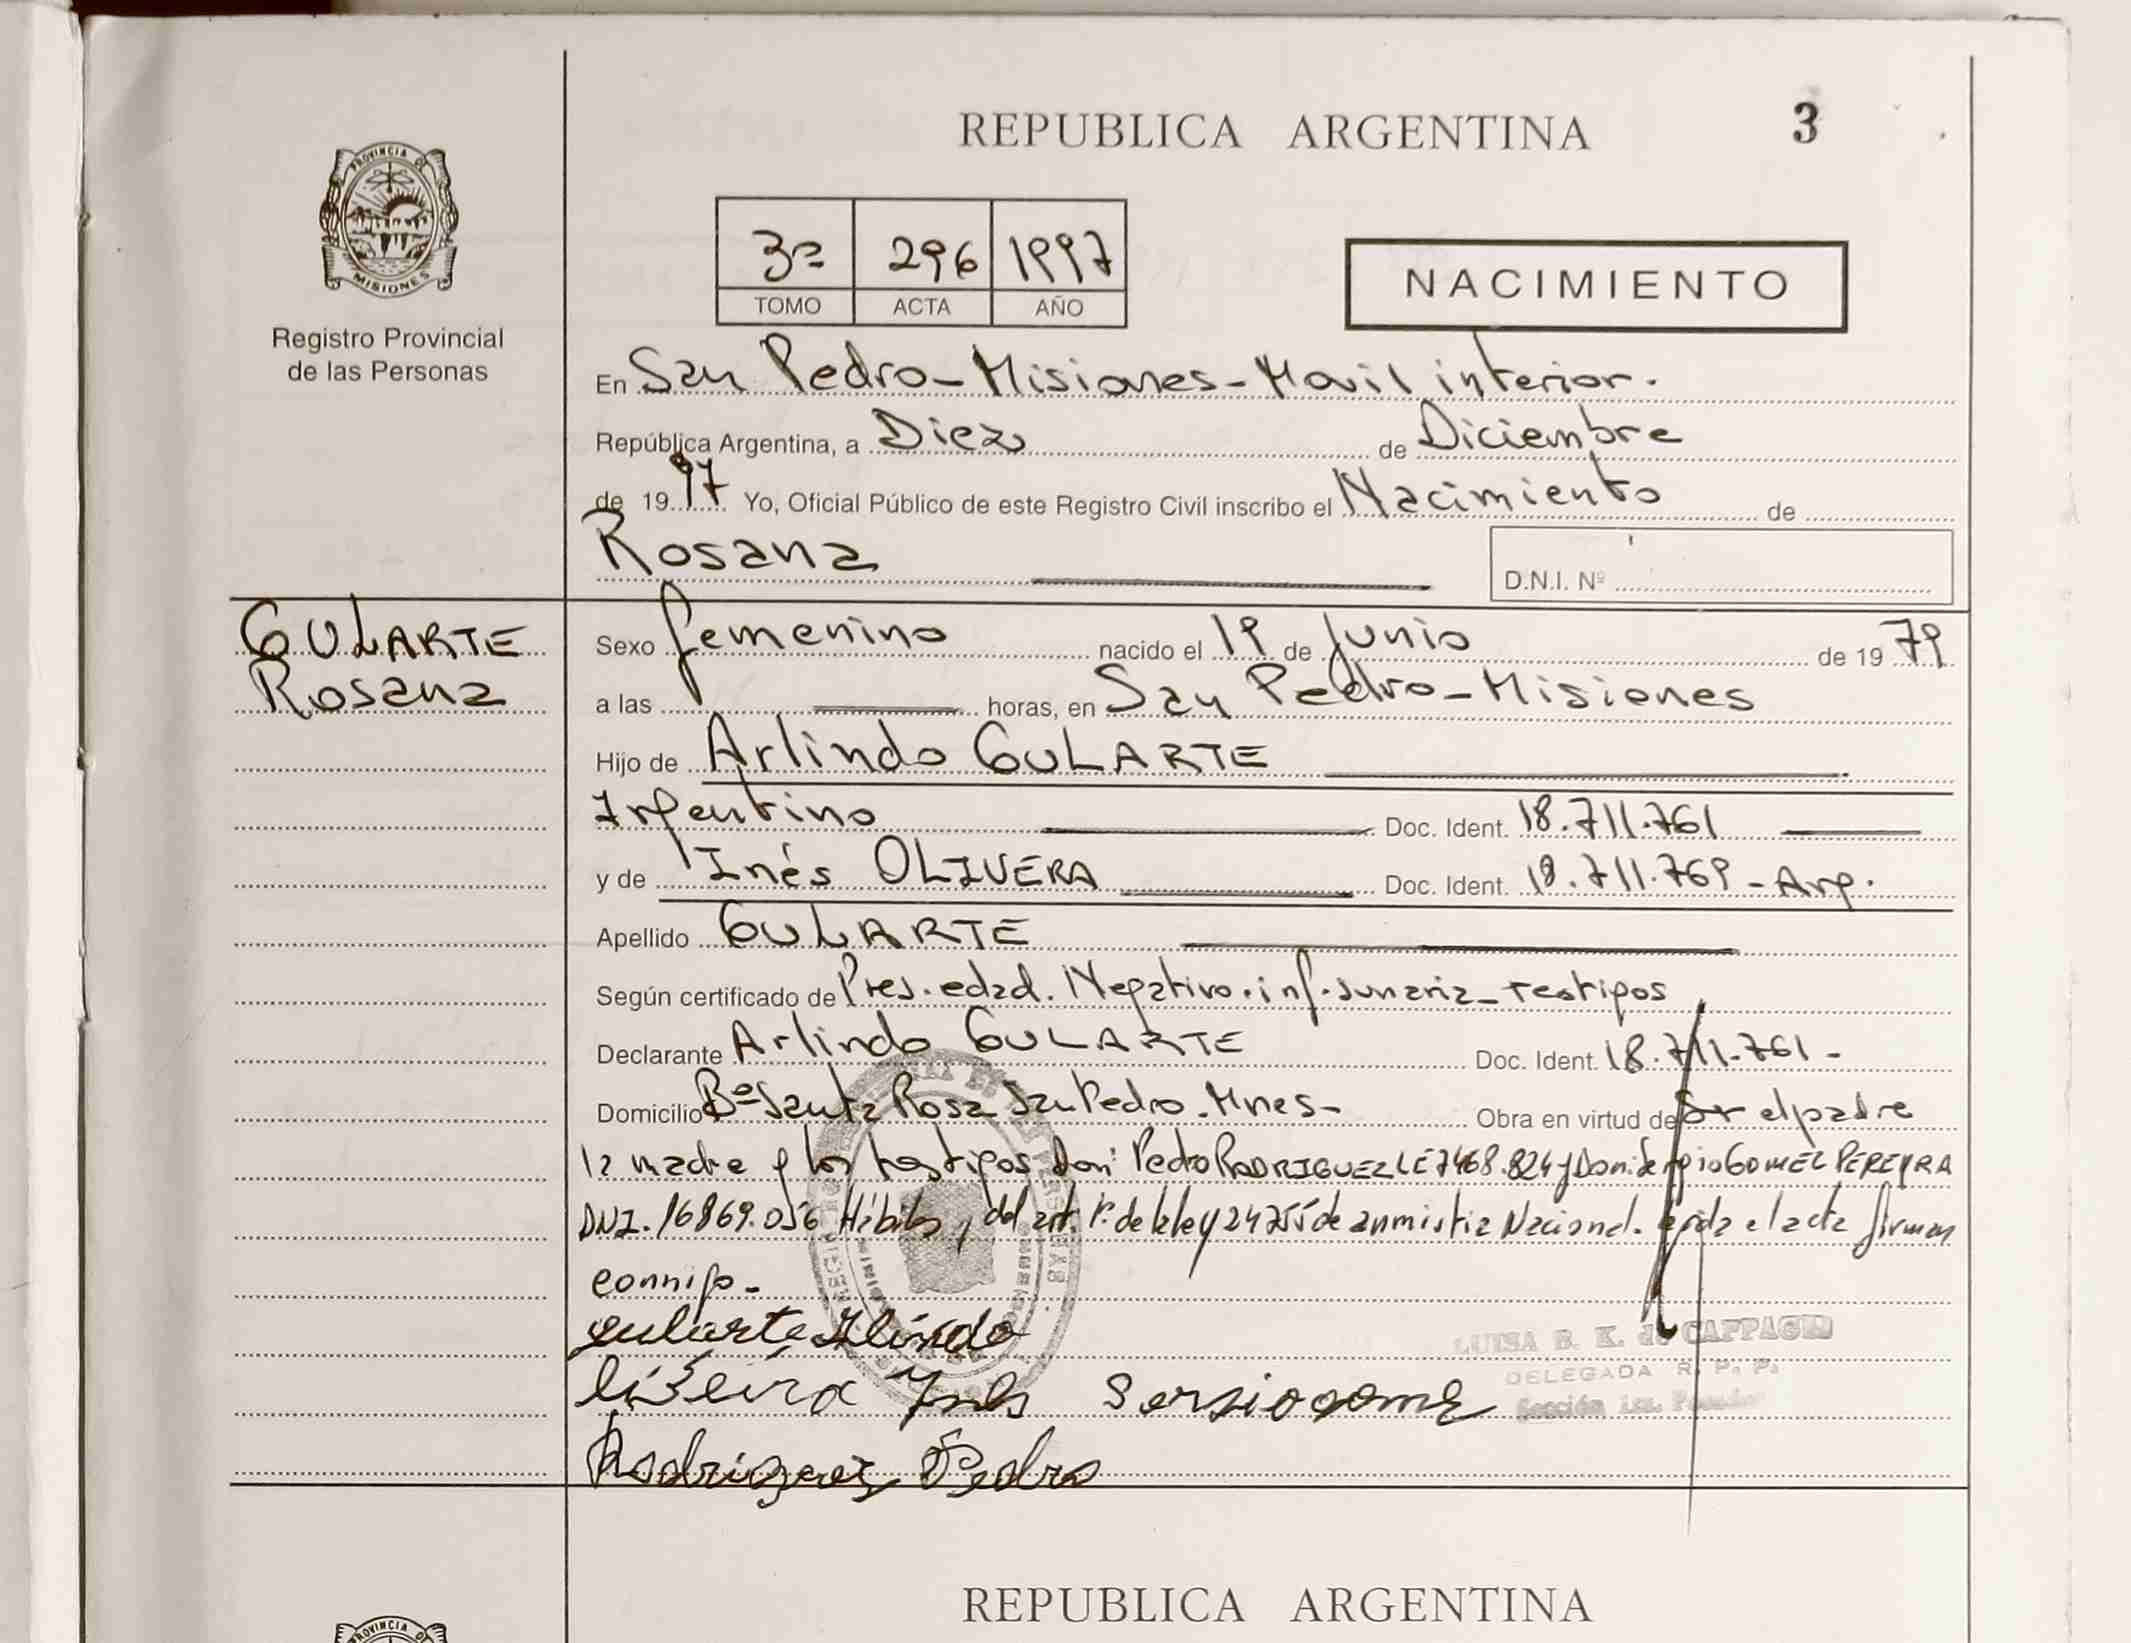 REPUBLICA ARGENTINA
3
PROVINCIA DE
MISIONES
Registro Provincial
de las Personas
3ª 296 1997
TOMO ACTA AÑO
NACIMIENTO
En San Pedro - Misiones - Movil interior.
República Argentina, a Diez de Diciembre
de 1997 Yo, Oficial Público de este Registro Civil inscribo el Nacimiento de
Rosana
D.N.I. Nº
GULARTE
Rosana
Sexo femenino nacido el 19 de Junio de 1979
a las horas, en San Pedro - Misiones
Hijo de Arlindo GULARTE
Argentino Doc. Ident. 18.711.761
y de Inés OLIVERA Doc. Ident. 18.711.769 - Arg.
Apellido GULARTE
Según certificado de Pres. edad. Negativo. inf. sumaria - testigos
Declarante Arlindo GULARTE Doc. Ident. 18.711.761 -
Domicilio Bº Santa Rosa San Pedro. Mnes - Obra en virtud de Ser el padre
la madre y los testigos Don: Pedro RODRIGUEZ LE 7468.824 y Don: Sergio GOMEZ PEREYRA
DNI. 16869.056 Hábiles y del art. 1º de la ley 24755 de amnistia Nacional. leida el acta firman
conmigo -
gularte Alindo
liBeira Ines Sersiogome
Rodriguez Pedro
LUISA B. K. de CAPPAGLI
DELEGADA R. P. P.
Sección 1ra.
REPUBLICA ARGENTINA
PROVINCIA DE